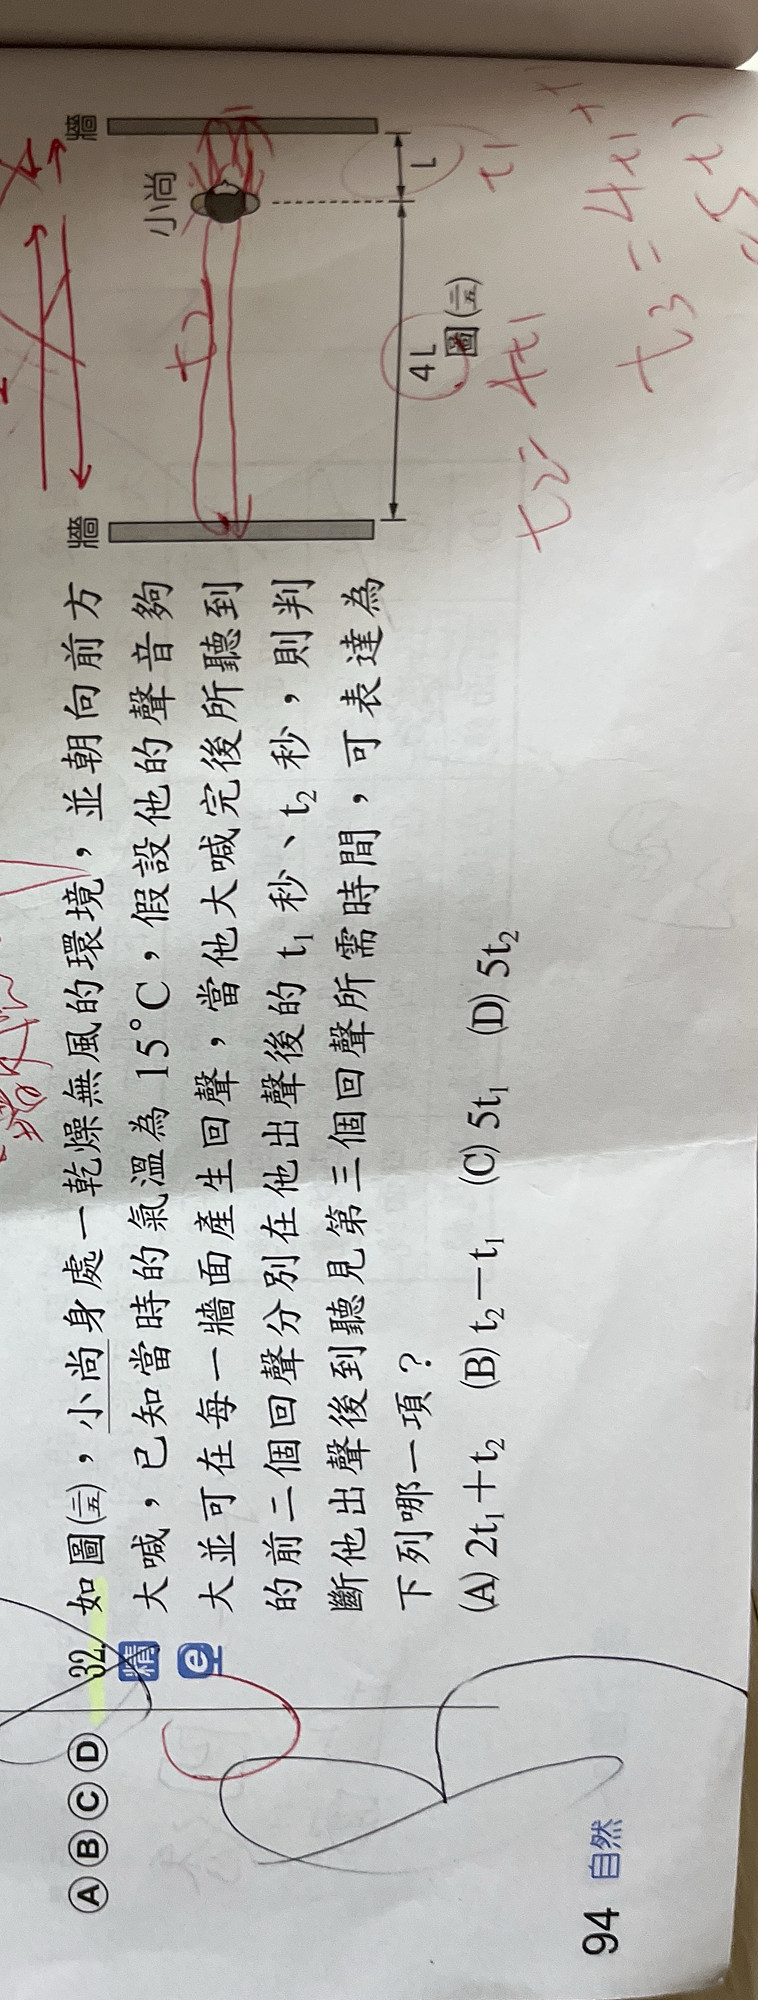 ⒶⒷⒸⒹ 32. 如圖(二五)，小尚身處一乾燥無風的環境，並朝向前方
精 大喊，已知當時的氣溫為 15°C，假設他的聲音夠
e 大並可在每一牆面產生回聲，當他大喊完後所聽到
的前二個回聲分別在他出聲後的 t₁ 秒、t₂ 秒，則判
斷他出聲後到聽見第三個回聲所需時間，可表達為
下列哪一項？
(A) 2t₁＋t₂ (B) t₂－t₁ (C) 5t₁ (D) 5t₂
牆 小尚 牆
t2
4L L
圖(二五)
t1
t2=4t1
t3=4t1+t1
5t1
94 自然